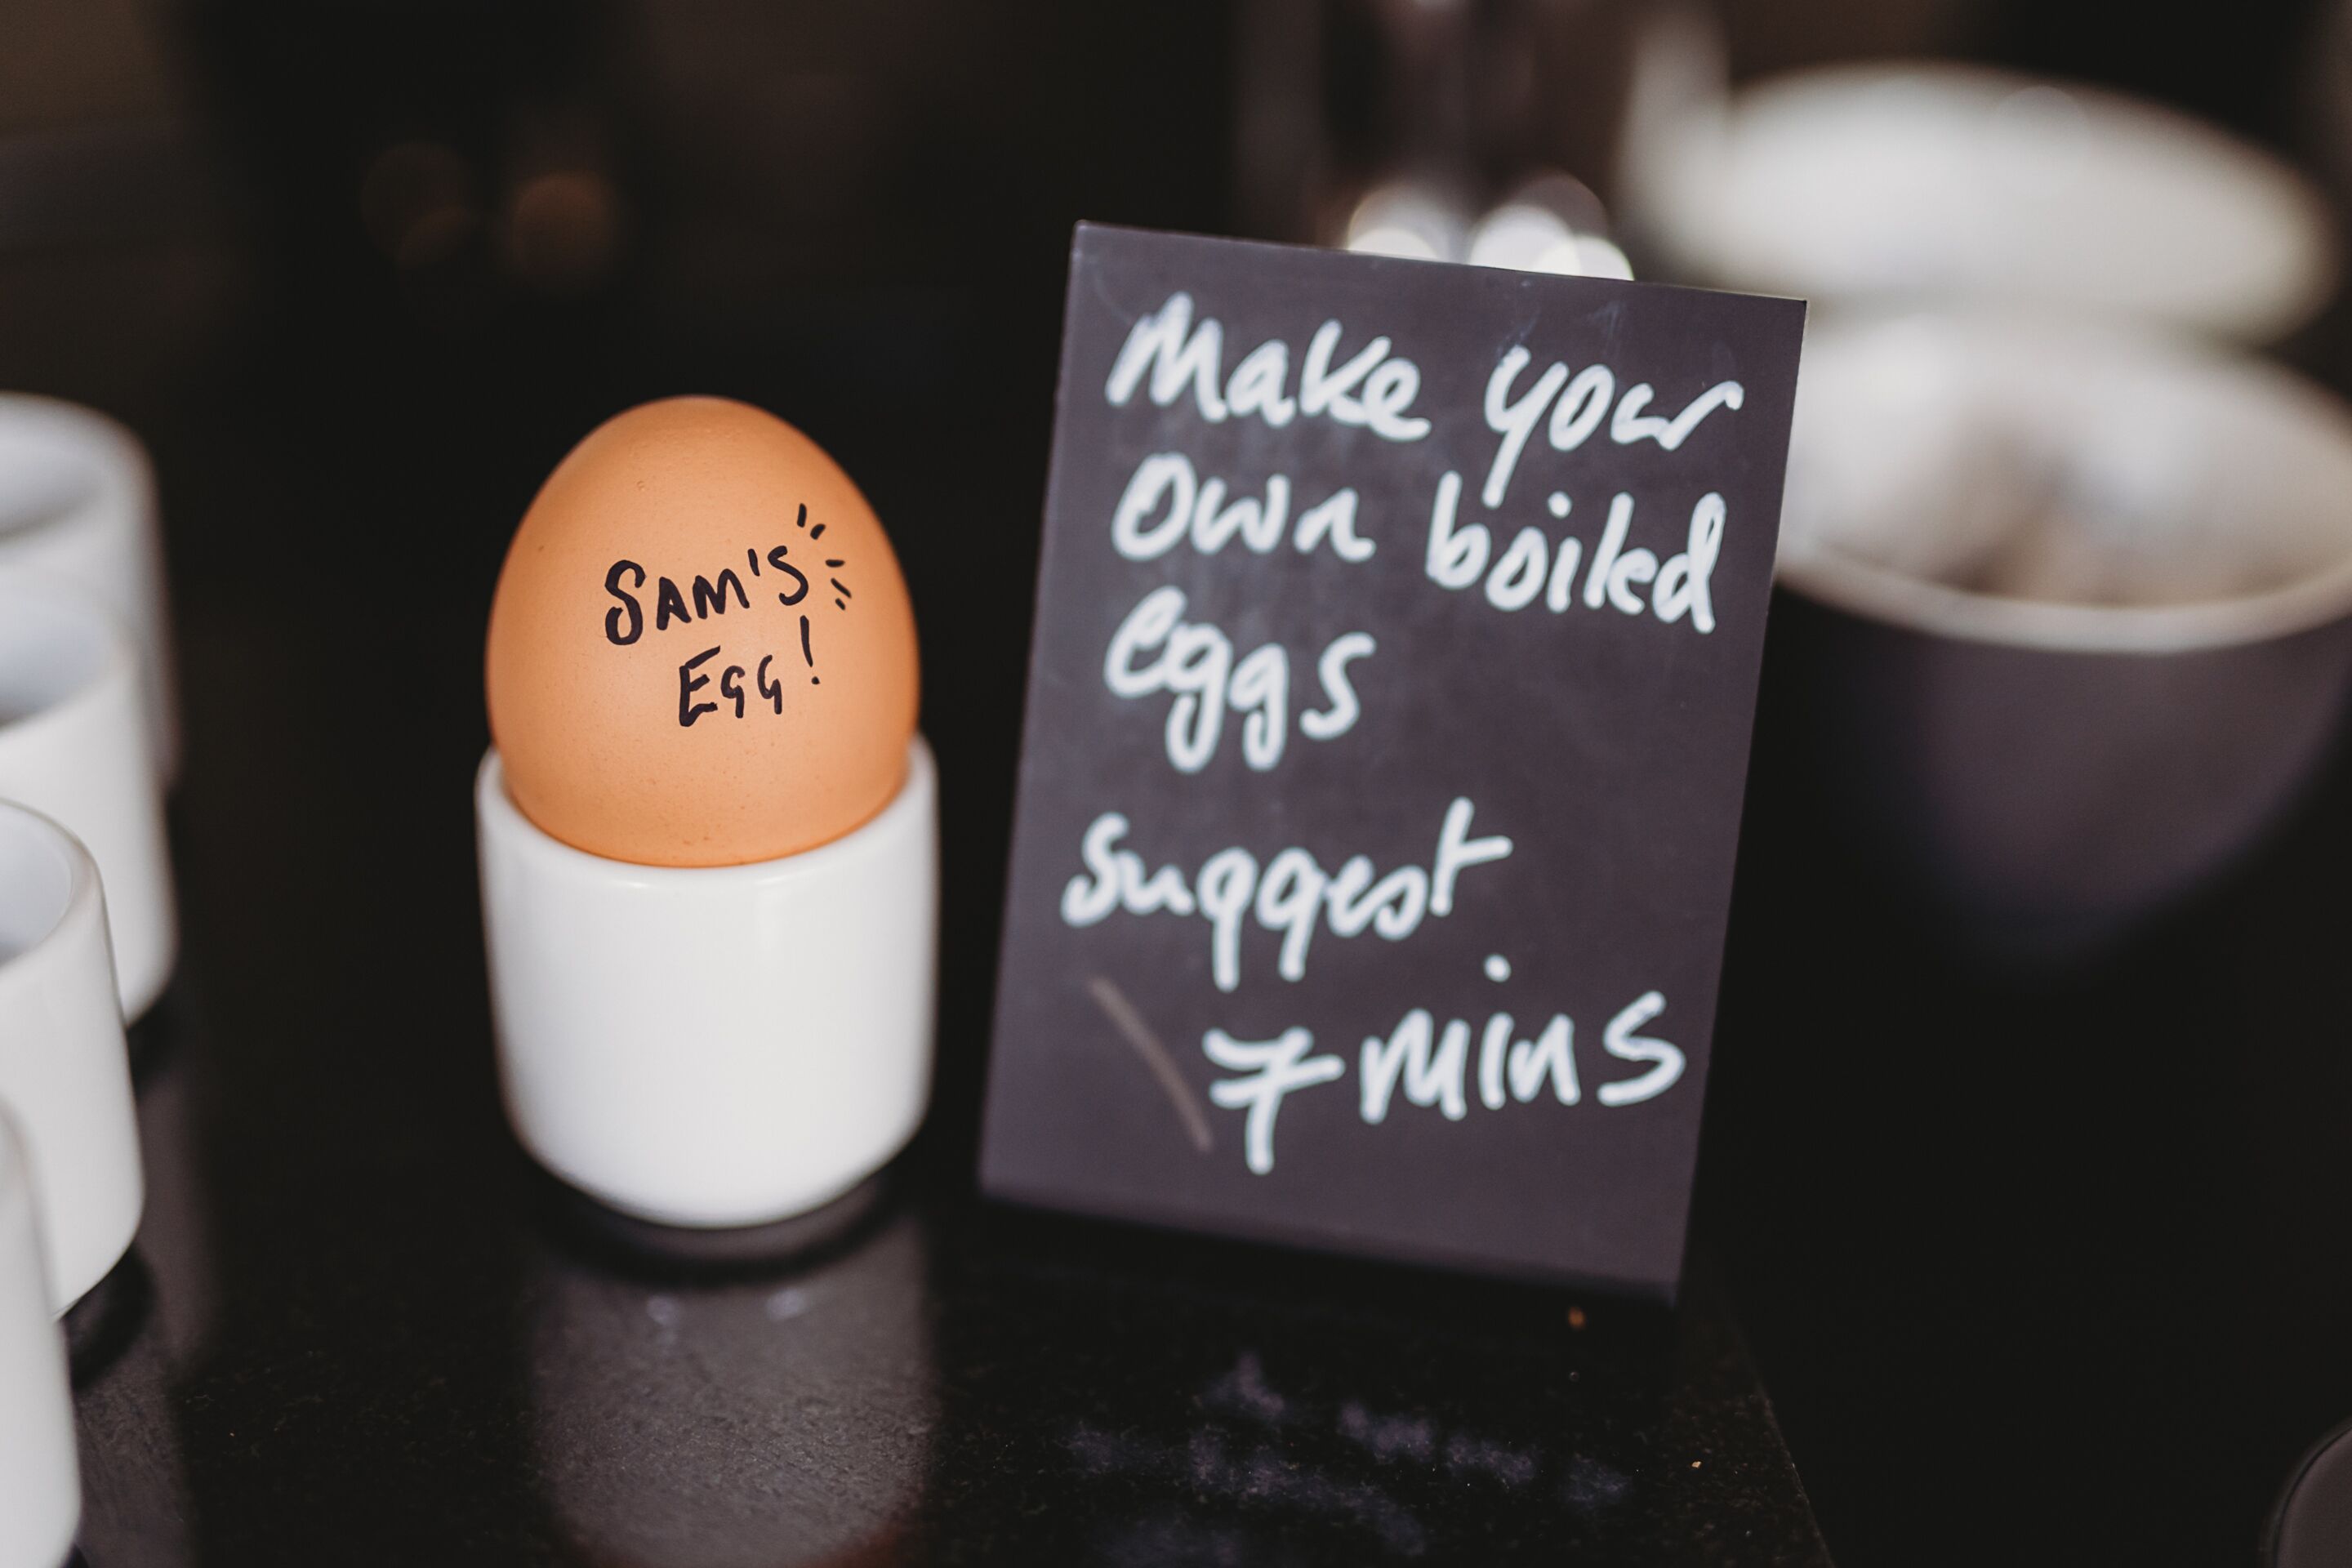 SAM'S
EGG!
Make your
own boiled
eggs
suggest
7 mins